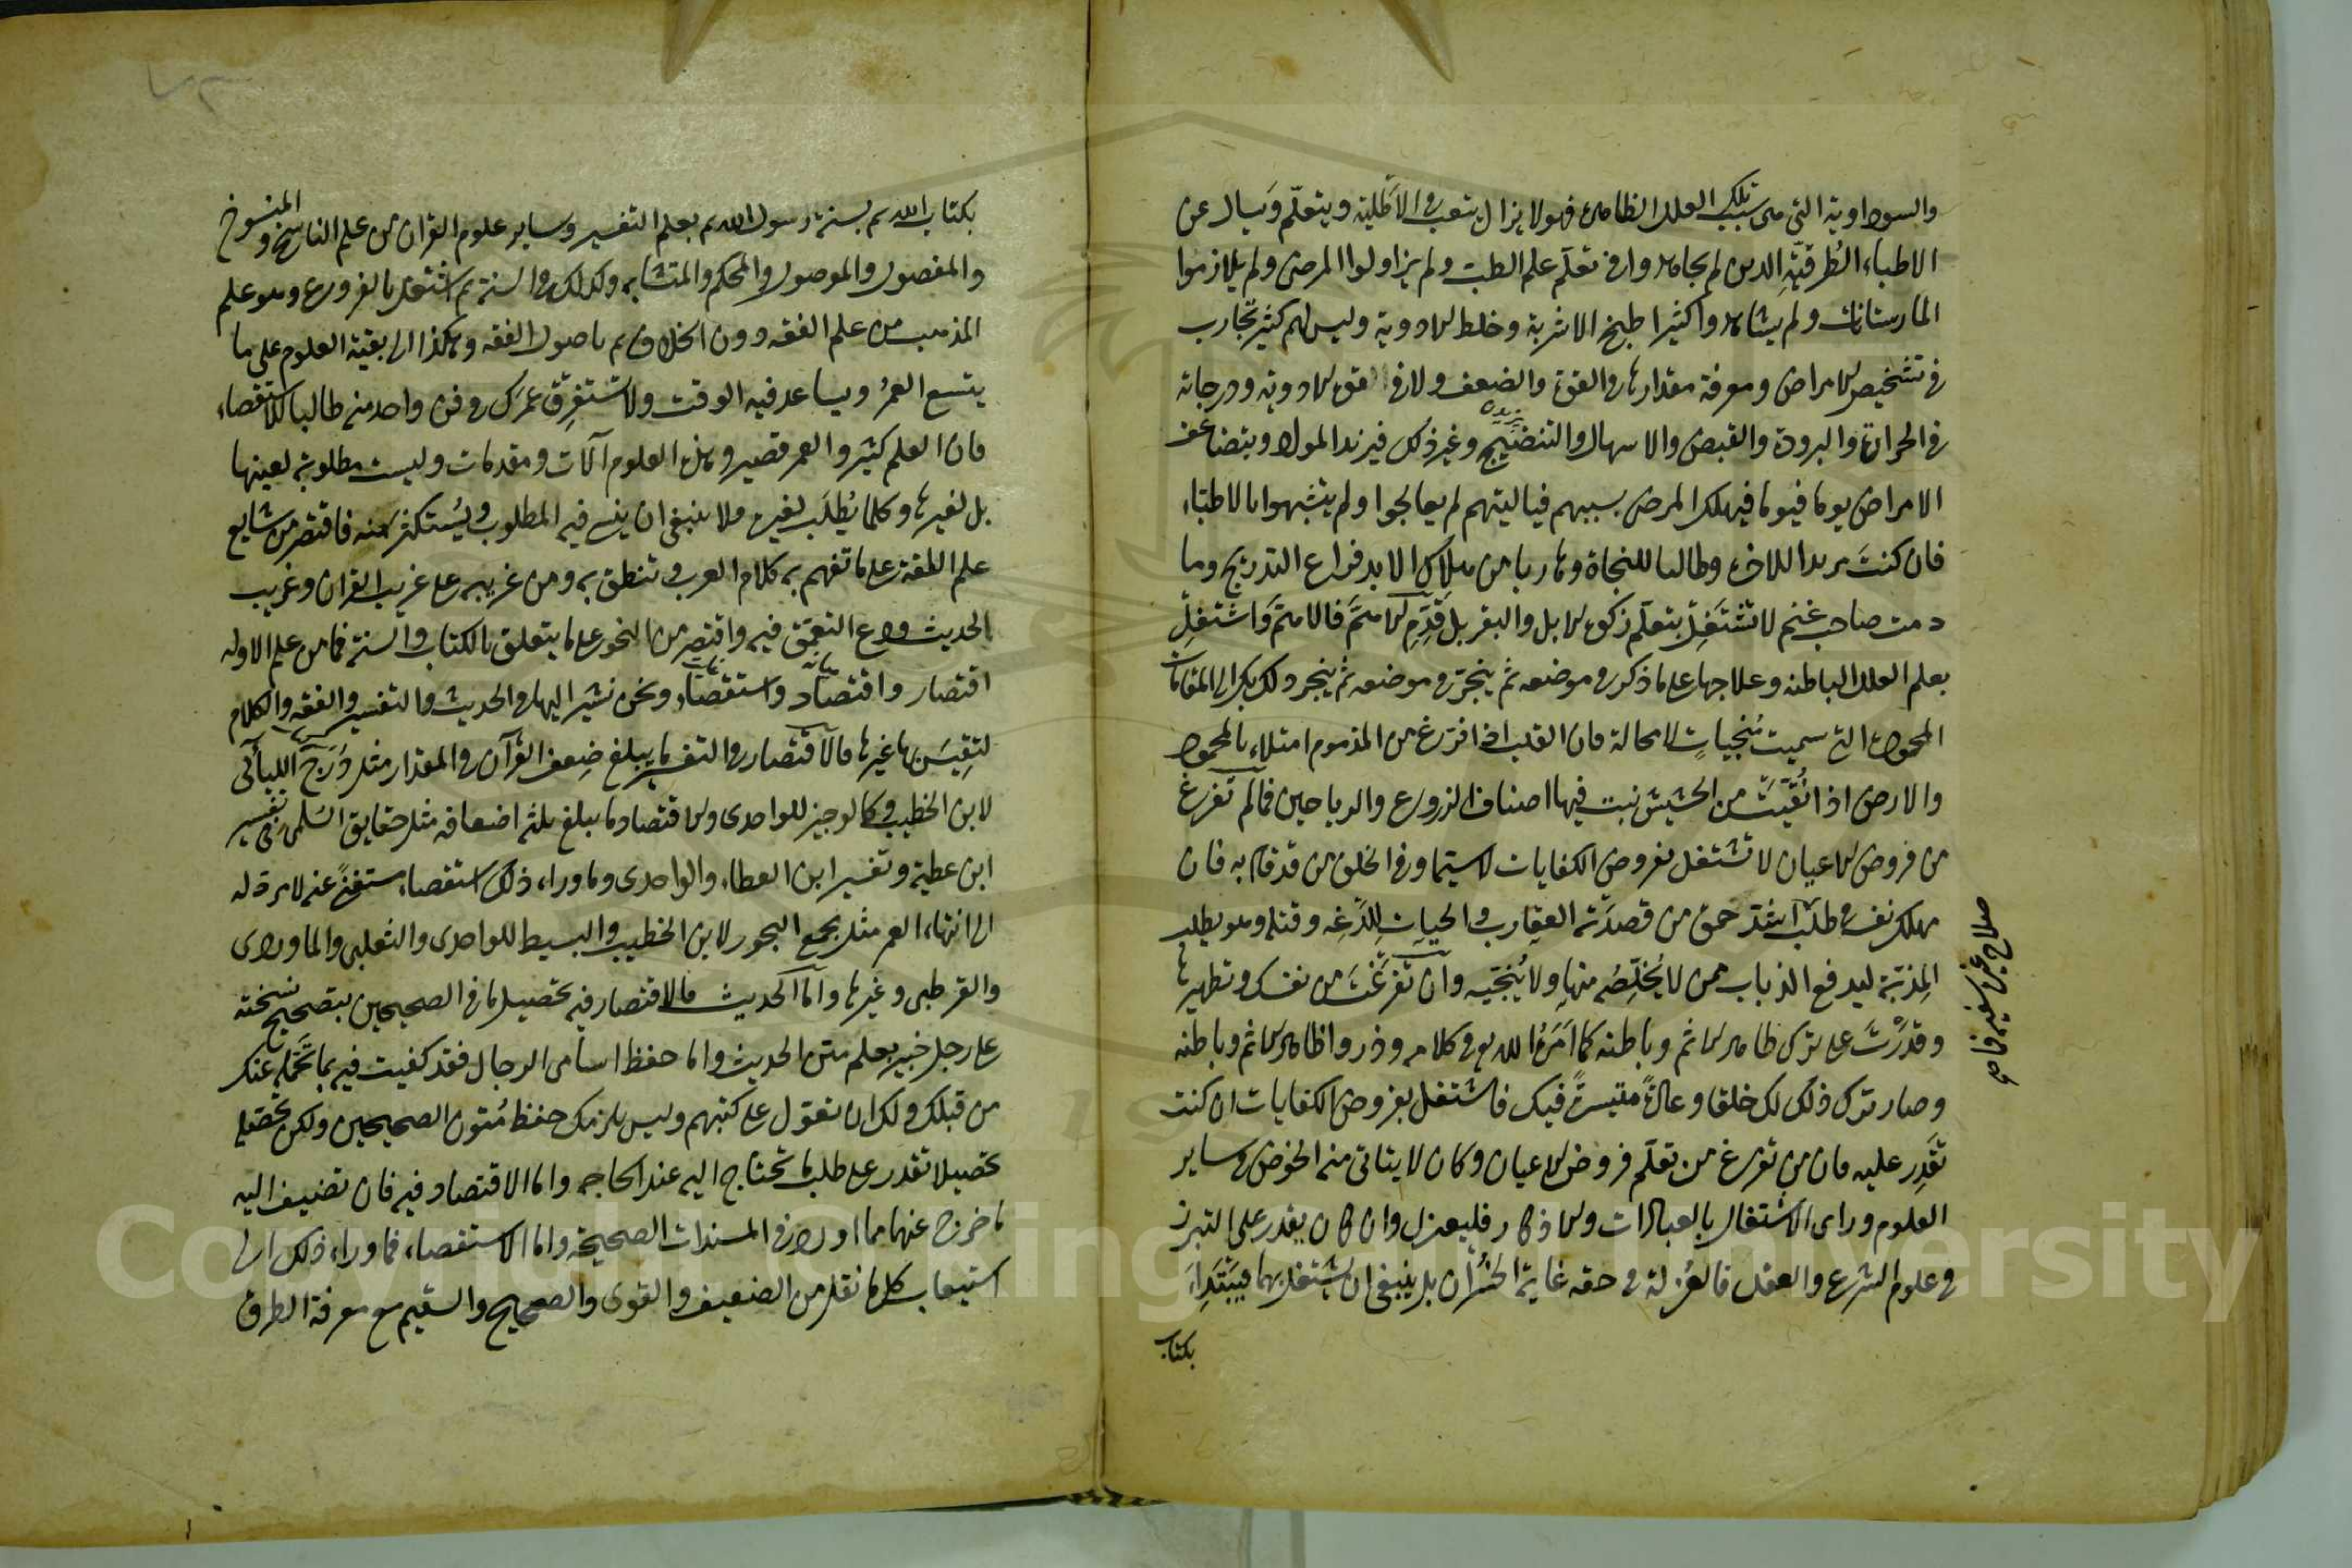 والسوداوية التي هي سبب تلك العلل الظاهرة فهو لا يزال يتعب في الأطلية ويتعلّم ويسأل عن
الاطباء الطرقية الذين لم يجاهدوا في تعلّم علم الطب ولم يزاولوا المرضى ولم يلازموا
المارستانات ولم يشاهدوا كثيرا طبخ الاشربة وخلط الادوية وليس لهم كثير تجارب
في تشخيص الامراض ومعرفة مقدارها في القوة والضعف ولا في القوى الادوية ودرجاته
في الحرارة والبرودة والقبض والاسهال والتنضيج وغير ذلك فيزيد المواد ويتضاعف
الامراض يوما فيوما فيهلك المرضى بسببهم فيا ليتهم لم يعالجوا ولم يتشبهوا بالاطباء
فان كنت مريدا للاخرة وطالبا للنجاة وهاربا من هلاك الابد فراع التدريج وما
دمت صاحب غنم لا تشتغل بتعلّم زكوة الابل والبقر بل قدّم الاهمّ فالاهمّ واشتغل
بعلم العلل الباطنة وعلاجها على ما ذكر في موضعه ثم ينجرّ في موضعه ثم ينجر ذلك بك الى المقامات
المحمودة التي سميت منجيات لا محالة فان القلب اذا فرغ من المذموم امتلاء بالمحمود
والارض اذا نُقّيت من الحشيش نبت فيها اصناف الزروع والرياحين فما لم تفرغ
من فروض الاعيان لا تشتغل بفروض الكفايات لا سيما وفي الخلق من قد قام به فان
مهلك نفسه في طلب اشد حمق من قصدته العقارب والحيات للدغه وقتله وهو يطلب
المذبّة ليدفع الذباب عمن لا يخلّصه منها ولا ينجّيه وان تفرّغت من نفسك وتطهيرها
صلاح غيره سفيه قام
وقدرت على ترك ظاهر الاثم وباطنه كما امر الله به في كلامه وذروا ظاهر الاثم وباطنه
وصار ترك ذلك لك خلقا وعادة متيسرة فيك فاشتغل بفروض الكفايات ان كنت
تقدر عليه فان من تفرغ من تعلّم فروض الاعيان وكان لا يتاتى منه الخوض في ساير
العلوم وراى الاشتغال بالعبادات والاذكار فليعتزل وان كان يقدر على التبرز
في علوم الشرع والعقل فالعزلة في حقه غاية الخسران بل ينبغي ان يشتغل بها فيبتدأ
بكتاب
بكتاب الله ثم بسنة رسول الله ثم بعلم التفسير وساير علوم القران من علم الناسخ والمنسوخ
والمفصول والموصول والمحكم والمتشابه وكذلك في السنة ثم اشتغل بالفروع وهو علم
المذهب من علم الفقه دون الخلاف ثم باصول الفقه وهكذا الى بقية العلوم على ما
يتسع العمر ويساعد فيه الوقت ولا تستغرق عمرك في فن واحد منه طالبا للاستقصاء
فان العلم كثير والعمر قصير وهذه العلوم آلات ومقدمات وليست مطلوبة لعينها
بل لغيرها وكلما يُطلَب لغيره فلا ينبغي ان ينسى فيه المطلوب ويُستكثر منه فاقتصر من شايع
علم اللغة على ما تفهم به كلام العرب وتنطق به ومن غريبه على غريب القران وغريب
الحديث ودع التعمّق فيه واقتصر من النحو على ما يتعلق بالكتاب والسنة فما من علم الا وله
اقتصار واقتصاد واستقصاء ونحن نشير اليها في الحديث والتفسير والفقه والكلام
لتقيس بها غيرها فالاقتصار في التفسير ما يبلغ ضعف القرآن في المقدار مثل درج اللئالي
لابن الخطيب وكالوجيز للواحدي والاقتصاد ما يبلغ ثلثة اضعافه مثل حقايق السلمي وتفسير
ابن عطية وتفسير ابن العطاء والواحدي وما وراء ذلك استقصاء مستغنى عنه لا مرد له
الى انتهاء العمر مثل مجمع البحور لابن الخطيب والبسيط للواحدي والثعلبي والماوردي
والقرطبي وغيرها واما الحديث فالاقتصار فيه تحصيل ما في الصحيحين بتصحيح نسخته
على رجل خبير بعلم متن الحديث واما حفظ اسامي الرجال فقد كفيت فيه بما تحمّله عنك
من قبلك ولك ان تعوّل على كتبهم وليس يلزمك حفظ مُتون الصحيحين ولكن تحصّله
تحصيلا تقدر على طلب ما تحتاج اليه عند الحاجة واما الاقتصاد فيه فان تضيف اليه
ما خرج عنهما مما اورد في المسندات الصحيحة واما الاستقصاء فما وراء ذلك الى
استيعاب كل ما نقل من الضعيف والقوى والصحيح والسقيم مع معرفة الطرق
Copyright © King Saud University